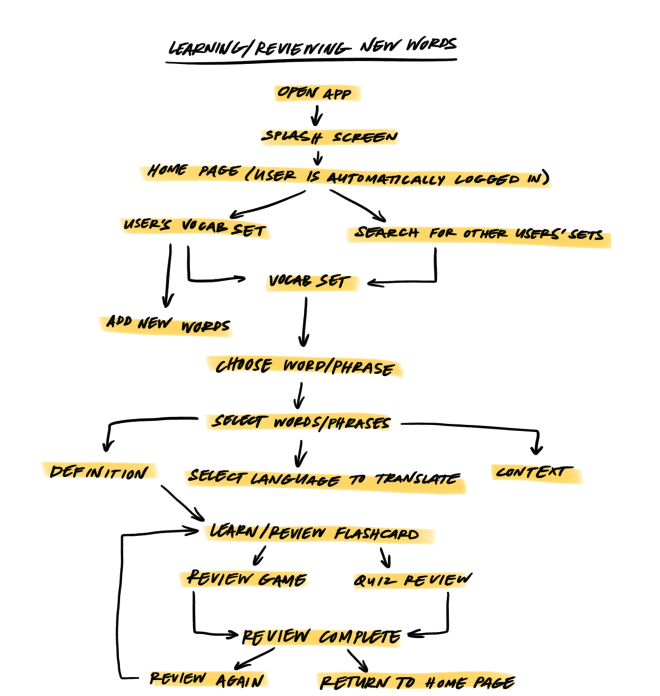 LEARNING/REVIEWING NEW WORDS
OPEN APP
SPLASH SCREEN
HOME PAGE (USER IS AUTOMATICALLY LOGGED IN)
USER'S VOCAB SET
SEARCH FOR OTHER USERS' SETS
VOCAB SET
ADD NEW WORDS
CHOOSE WORD/PHRASE
SELECT WORDS/PHRASES
DEFINITION
SELECT LANGUAGE TO TRANSLATE
CONTEXT
LEARN/REVIEW FLASHCARD
REVIEW GAME
QUIZ REVIEW
REVIEW COMPLETE
REVIEW AGAIN
RETURN TO HOME PAGE